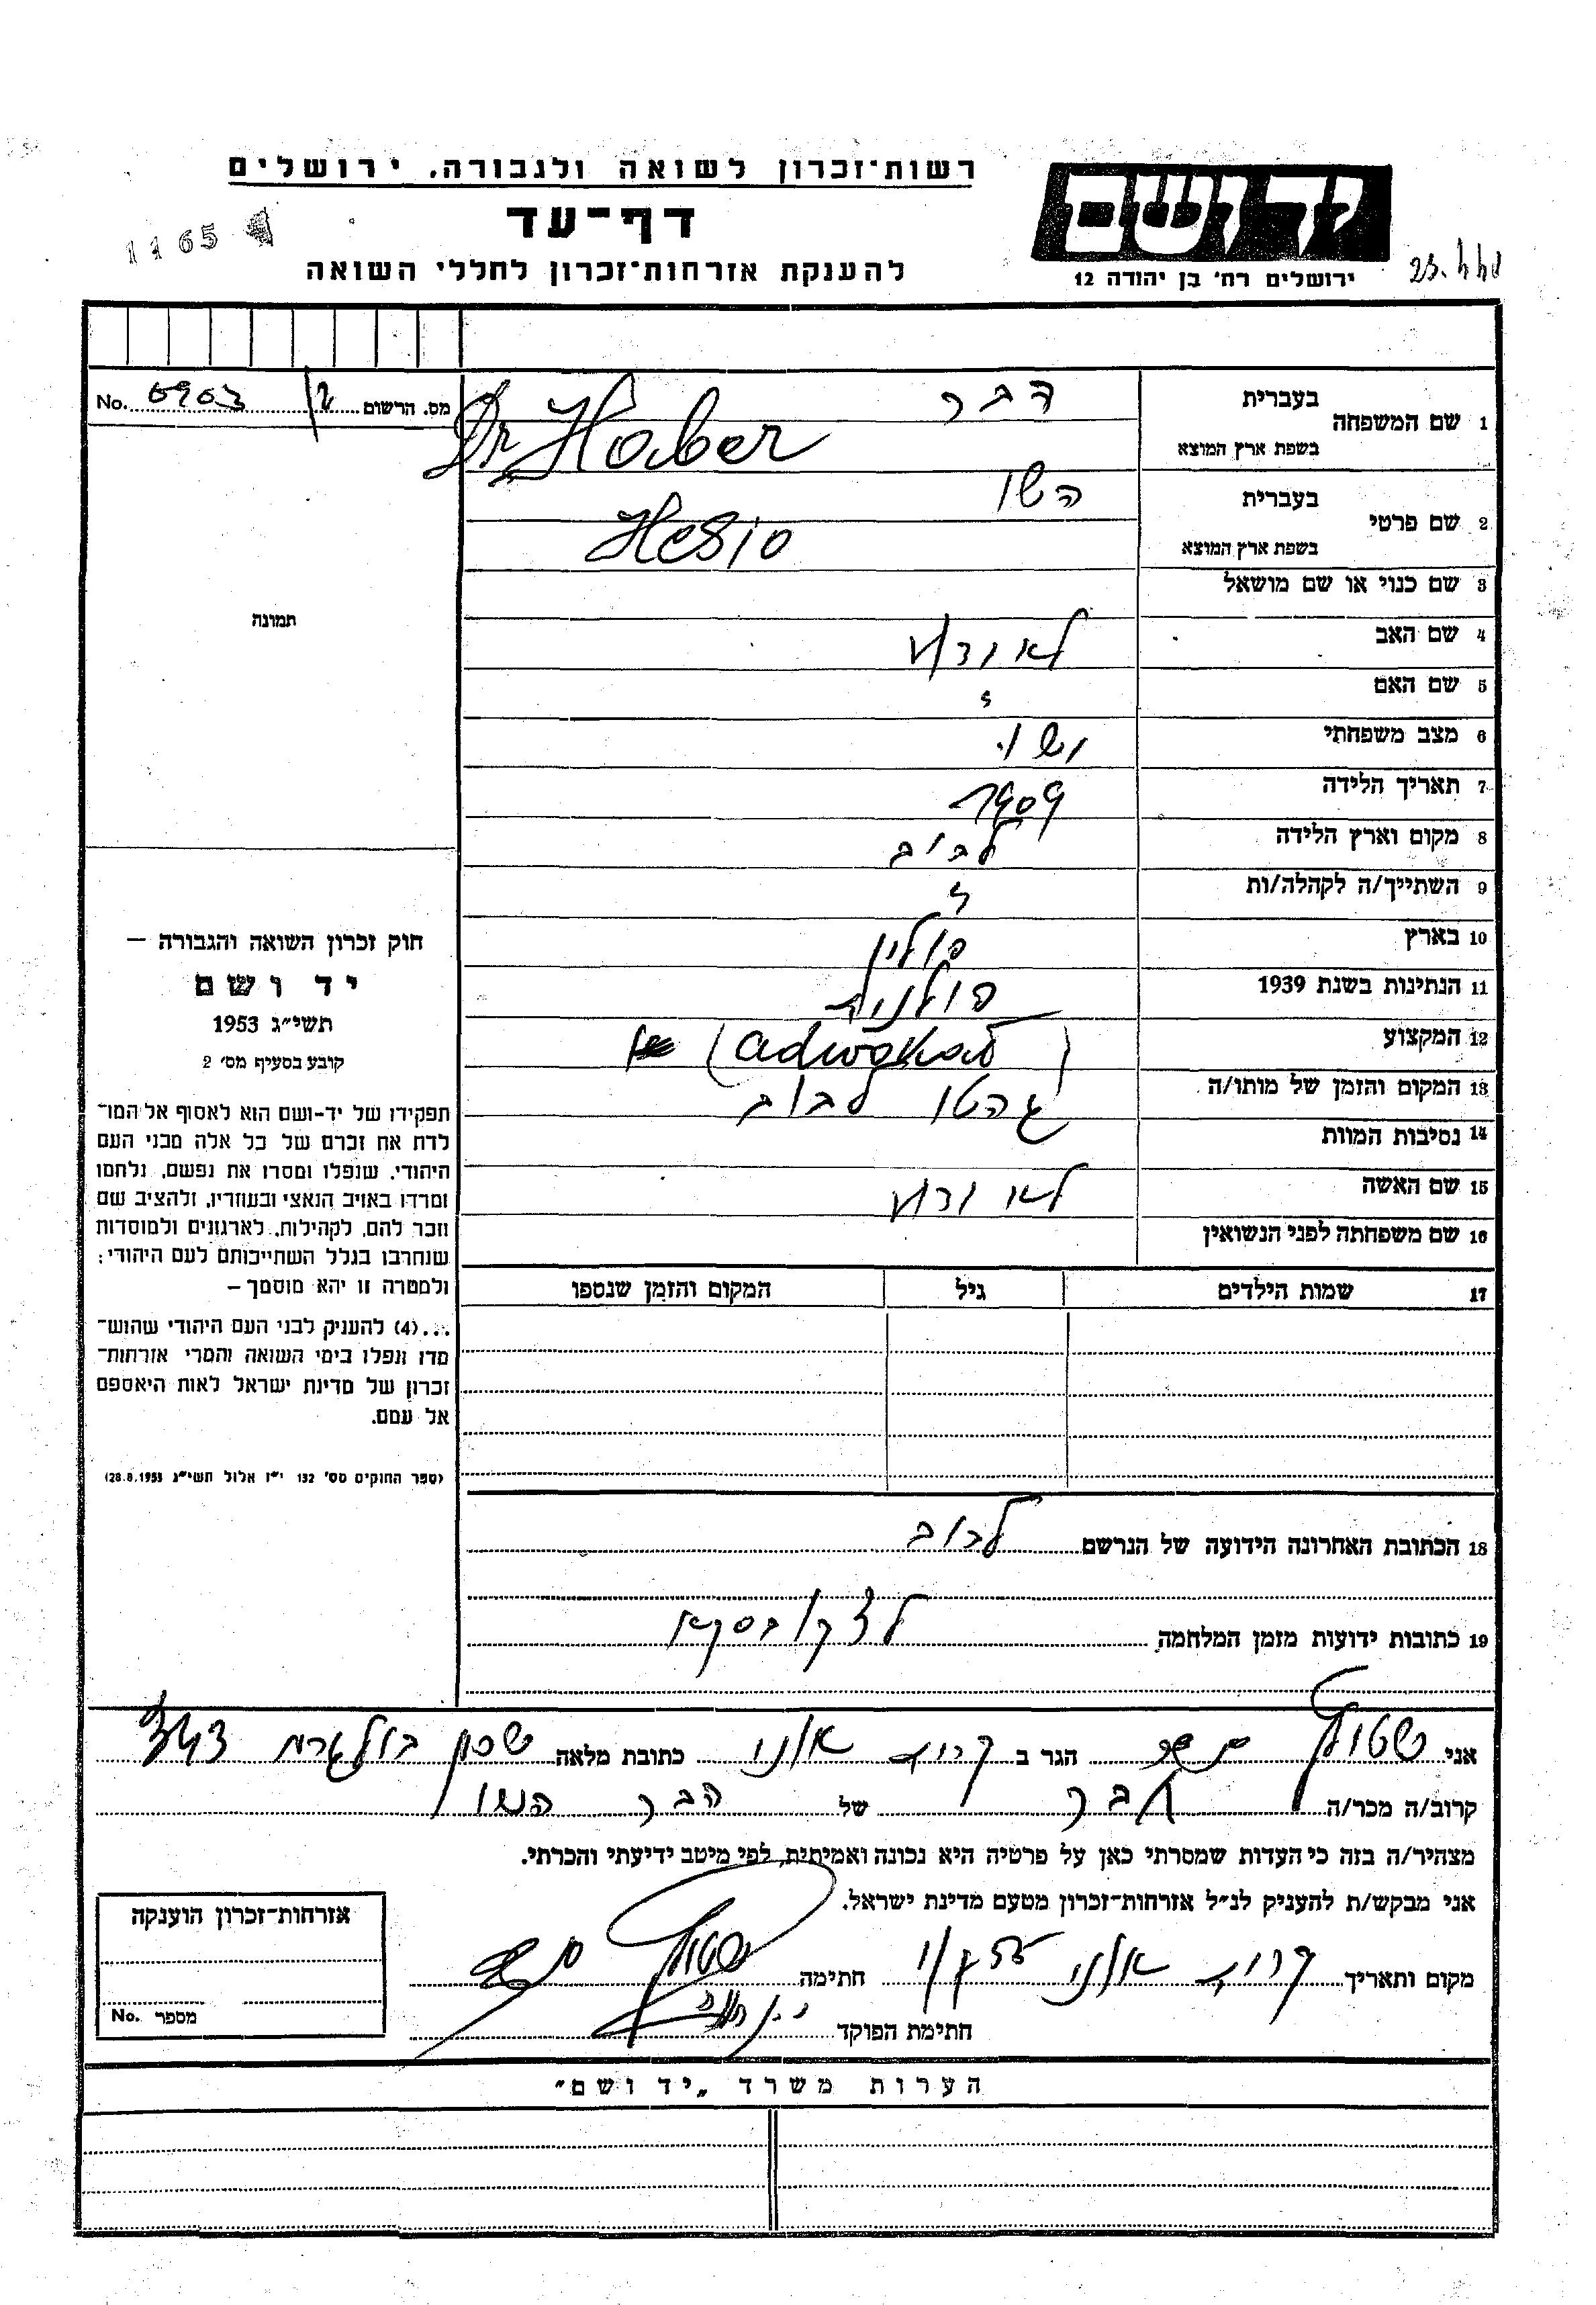 רשות־זכרון לשואה ולגבורה. ירושלים
יד ושם
דף־עד
1165
להענקת אזרחות־זכרון לחללי השואה
ירושלים רח' בן יהודה 12
מס. הרשום No.
1 שם המשפחה בעברית הבר
בשפת ארץ המוצא Dr Haber
2 שם פרטי בעברית השו
בשפת ארץ המוצא Hesio
3 שם כנוי או שם מושאל
תמונה
4 שם האב לא ודוע
5 שם האם
6 מצב משפחתי נשוי
7 תאריך הלידה 1909
8 מקום וארץ הלידה לבוב
9 השתייך/ה לקהלה/ות
10 בארץ פולין
11 הנתינות בשנת 1939 פולנית
12 המקצוע (adwokat)
13 המקום והזמן של מותו/ה גהטו לבוב
14 נסיבות המוות
15 שם האשה לא ודוע
16 שם משפחתה לפני הנשואין
17 שמות הילדים גיל המקום והזמן שנספו
חוק זכרון השואה והגבורה —
יד ושם
תשי"ג 1953
קובע בסעיף מס' 2
תפקידו של יד-ושם הוא לאסוף אל המו־
לדת את זכרם של כל אלה מבני העם
היהודי, שנפלו ומסרו את נפשם, נלחמו
ומרדו באויב הנאצי ובעוזריו, ולהציב שם
וזכר להם, לקהילות, לארגונים ולמוסדות
שנחרבו בגלל השתייכותם לעם היהודי;
ולמטרה זו יהא מוסמך —
...(4) להעניק לבני העם היהודי שהוש־
מדו ונפלו בימי השואה והמרי אזרחות־
זכרון של מדינת ישראל לאות היאספם
אל עמם.
(ספר החוקים מס' 132 י"ז אלול תשי"ג 28.8.1953)
18 הכתובת האחרונה הידועה של הנרשם לבוב
19 כתובות ידועות מזמן המלחמה
אני הגר ב קרית אונו כתובת מלאה שכון
קרוב/ה מכר/ה חבר של הבר השו
מצהיר/ה בזה כי העדות שמסרתי כאן על פרטיה היא נכונה ואמיתית, לפי מיטב ידיעתי והכרתי.
אני מבקש/ת להעניק לנ"ל אזרחות־זכרון מטעם מדינת ישראל.
מקום ותאריך קרית אונו חתימה
חתימת הפוקד
אזרחות־זכרון הוענקה
מספר No.
הערות משרד „יד ושם"